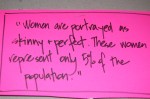 "Women are portrayed as
skinny + perfect. These women
represent only 5% of the
population."